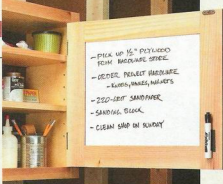 - PICK UP ½" PLYWOOD
FROM HARDWARE STORE
- ORDER PROJECT HARDWARE
- KNOBS, HINGES, MAGNETS
- 220-GRIT SANDPAPER
- SANDING BLOCK
- CLEAN SHOP ON SUNDAY